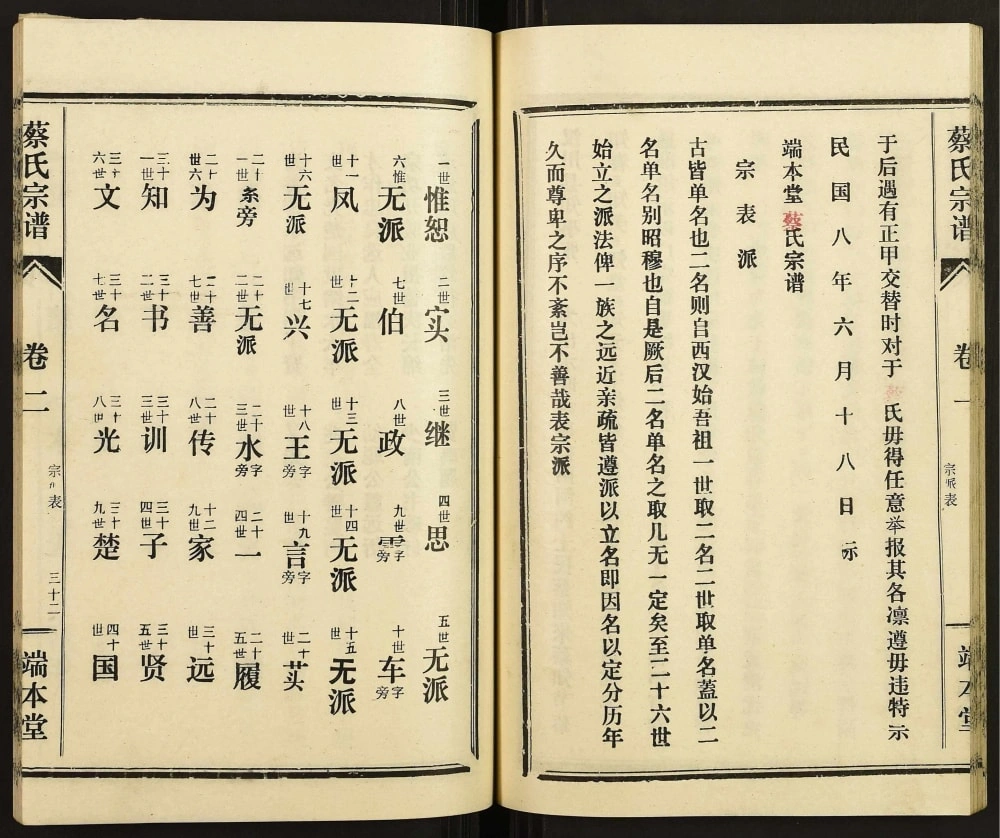 蔡氏宗谱 卷一 宗派表 端本堂
于后遇有正甲交替时对于蔡氏毋得任意举报其各凛遵毋违特示
民国八年六月十八日示
端本堂蔡氏宗谱
宗表派
古皆单名也二名则自西汉始吾祖一世取二名二世取单名蓋以二
名单名别昭穆也自是厥后二名单名之取几无一定矣至二十六世
始立之派法俾一族之远近亲疏皆遵派以立名即因名以定分历年
久而尊卑之序不紊岂不善哉表宗派
一世惟恕 二世实 三世继 四世思 五世无派
六惟无派 七世伯 八世政 九世雲字旁 十世车字旁
十一世凤 十二世无派 十三世无派 十四世无派 十五世无派
十六世无派 十七世兴 十八世王字旁 十九世言字旁 二十世
二十一世糸旁 二十二世无派 二十三世水字旁 二十四世一 二十五世履
二十六世为 二十七世善 二十八世传 十二九世家 三十世远
三十一世知 三十二世书 三十三世训 三十四世子 三十五世贤
三十六世文 三十七世名 三十八世光 三十九世楚 四十世国
蔡氏宗谱 卷二 宗 表 三十二 端本堂